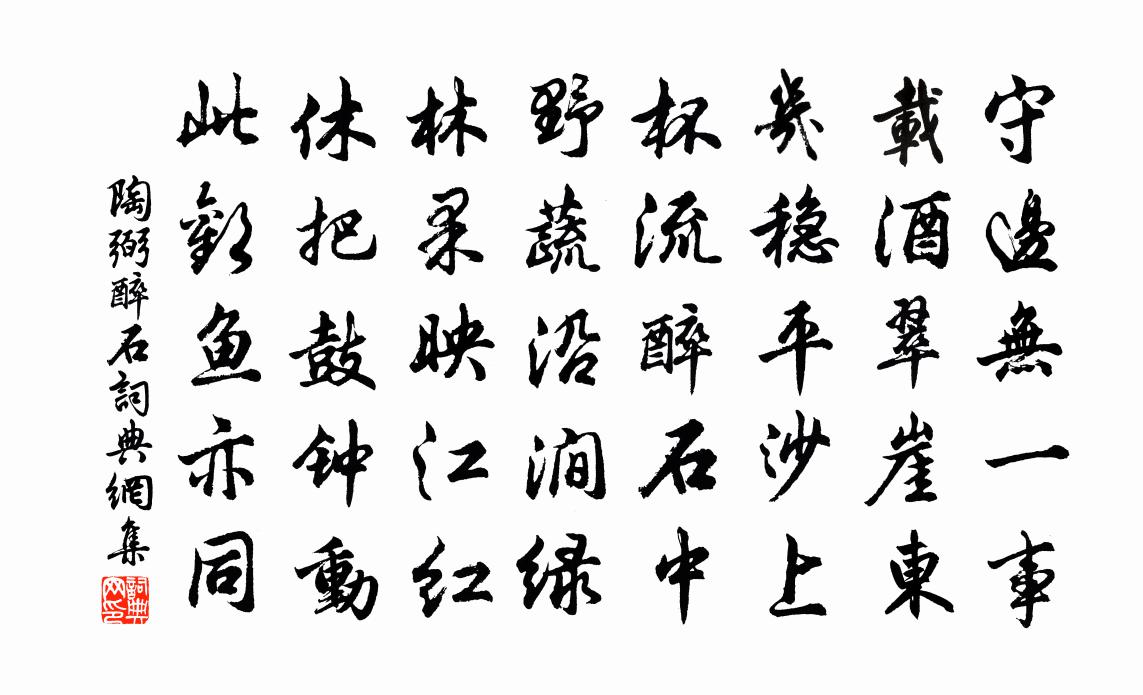 守邊無一事
載酒翠崖東
幾稳平沙上
杯流醉石中
野蔬沿澗緑
林果映江紅
休把鼓钟動
此歡鱼亦同
陶弼醉石詞典網集
詞典网印